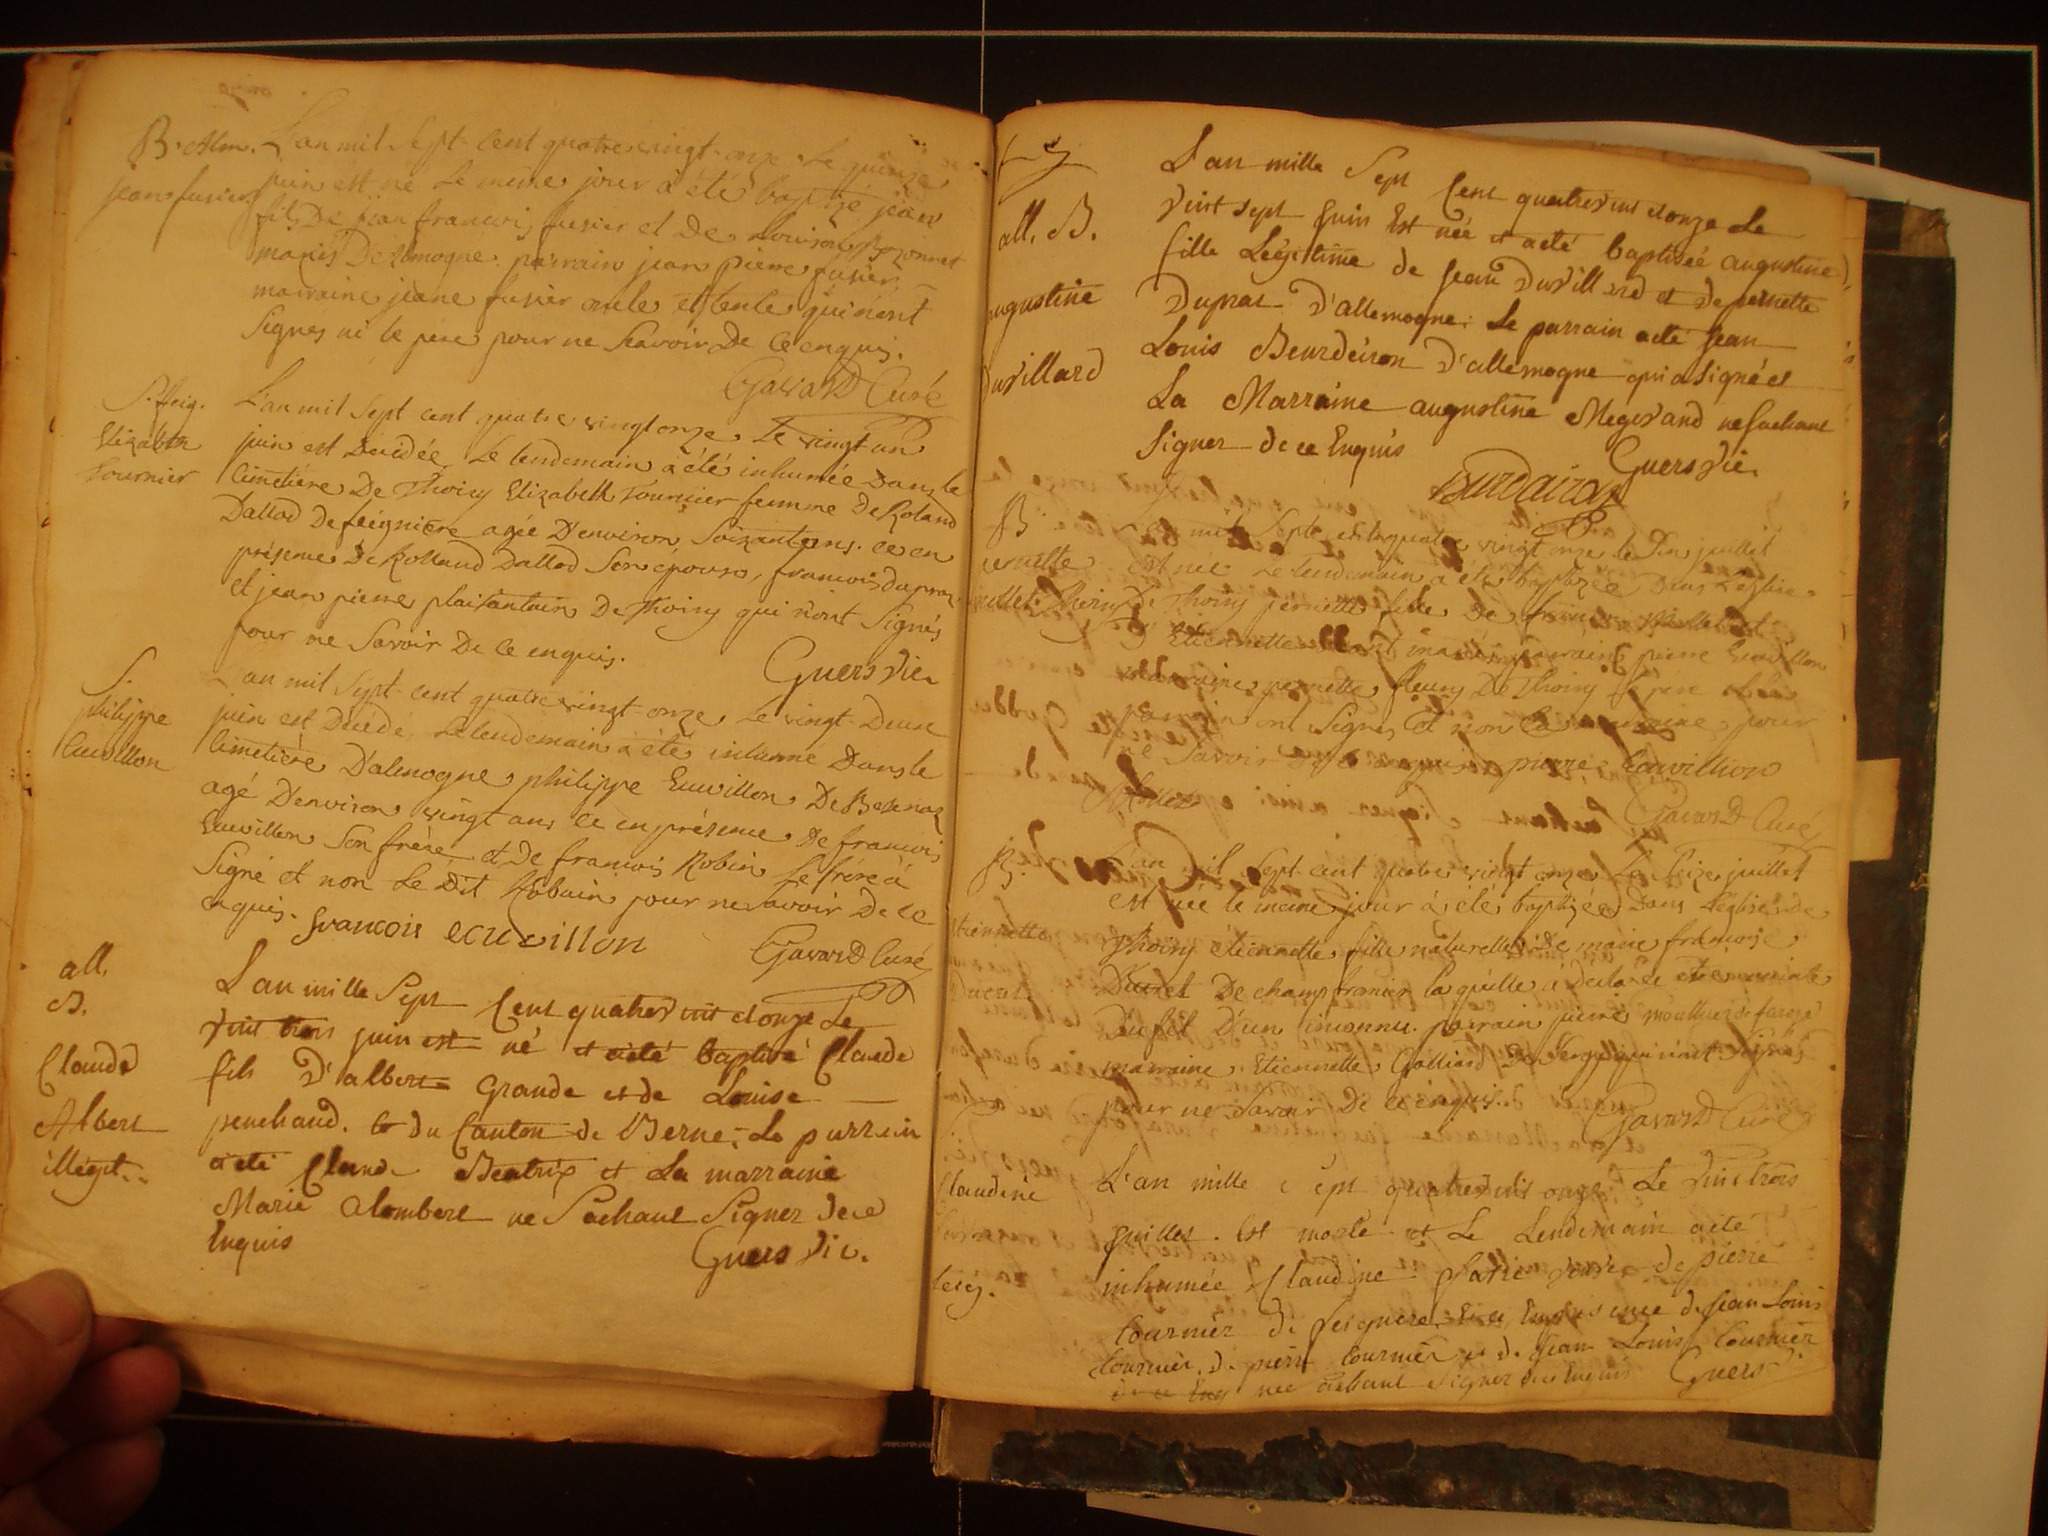 B. Alm.
jean fusier
L'an mil sept cent quatre vingt onze Le quinze
juin est né Le meme jour a été baptizé jean
fils De jean francois fusier et De Louison
mariés D'alemogne parrain jean pierre fusier
marraine jeane fusier oncle et tente qui n'ont
Signes ni le pere pour ne Scavoir De ce enquis.
Gavard Curé
S. feig.
Elizabeth
Tournier
L'an mil sept cent quatre vingt onze Le vingt un
juin est Décédée Le lendemain a été inhumée Dans le
Cimetière De Thoiry Elizabeth Tournier femme De Roland
Dallod De feignière agée D'environ Soizante ans. ce en
présence De Rolland Dallod Son époux, francois Dupraz
Et jean pierre plaitantain De Thoiry qui n'ont Signés
pour ne Savoir De ce enquis.
Guers Vic.
S.
philippe
Ecuvillon
L'an mil sept cent quatre vingt onze Le vingt Deux
juin est Décédé, Le lendemain a été inhumé Dans le
Cimetière D'alemogne philippe Ecuvillon De
agé D'environ vingt ans ce en présence De francois
Ecuvillon Son frère et De francois Robin Le frère a
Signé et non Le Dit Robain pour ne Savoir De ce
enquis. francois ecuvillon
Gavard Curé
all.
B.
Claude
Albert
illégit..
L'an mille Sept Cent quatrevint et onze Le
vint trois juin est né et a été baptisé Claude
fils D'albert Grande et de Louise
penchaud. du Canton de Berne; Le parrain
a été Claude Beatrix et La marraine
Marie alombert ne Sachant Signer de ce
Enquis
Guers Vic.
all. B.
augustine
Duvillard
L'an mille Sept Cent quatrevint et onze Le
Vint sept Juin Est née et a été baptisée augustine
fille Légitime de Jean Duvillard et de pernette
Dupraz D'allemogne: Le parrain a été Jean
Louis Beurdeiron D'allemogne qui a signé et
La Marraine augustine Megevand ne sachant
Signer de ce Enquis
Guers Vic.
B.
pernette
mollet Thoiry
mil Sept cent quatre vingt onze le Dix juillet
est née Le lendemain a été baptizée Dans L'église
De Thoiry pernette fille De mollet et
Etiennette mariés parrain pierre Ecuvillon
marraine pernette fleury De Thoiry Le pére et le
parrain ont Signés et non La marraine pour
ne Savoir pierre Ecuvillion
Mollet
Gavard Curé
B.
Etiennette
Ducret
L'an mil Sept cent quatre vingt onze Le Seize juillet
est née le meme jour a été baptizée Dans L'église De
Thoiry etiennette fille naturelle De marie francoise
Ducret De champfromier Laquelle a Déclarée
D'un inconnu. parrain pierre
marraine Etiennette Golliard De qui n'ont Signés
pour ne Savoir De ce enquis.
Gavard Curé
Claudine
feig.
L'an mille Sept quatrevint onze Le Vint trois
Juillet. Est morte et Le Lendemain a été
inhumée Claudine veuve de pierre
tournier de feigniere. Et ce En présence de Jean Louis
tournier, de pierre tournier et de Jean Louis tournier
ne sachant Signer de ce Enquis
Guers V.